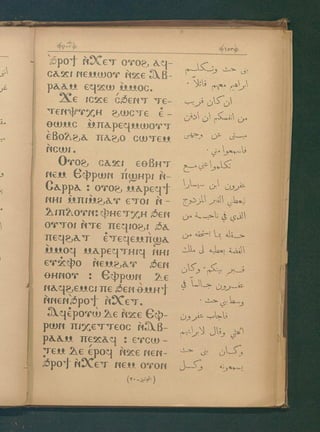 ϣⲏⲣⲓ ⲛ̀Ⲭⲉⲧ ⲟⲩⲟϩ, ⲁϥ-
ⲥⲁϫⲓ ⲛⲉⲙⲱⲟⲩ ⲛ̀ϫⲉ Ⲁⲃ-
ⲣⲁⲁⲙ ⲉϥϫⲱ ⲙ̀ⲙⲟⲥ.
Ϫⲉ ⲓⲥϫⲉ ϥ̀ϧⲉⲛⲧ ⲧⲉ-
ⲧⲉⲛⲯⲩⲭⲏ ϩⲱⲥⲧⲉ ⲉ̀-
ⲑⲱⲙⲥ ⲙ̀ⲡⲁⲣⲉϥⲙⲱⲟⲩⲧ
ⲉ̀ⲃⲟⲗϩⲁ ⲡⲁϩⲟ ⲥⲱⲧⲉⲙ
ⲛ̀ⲥⲱⲓ.
Ⲟⲩⲟϩ, ⲥⲁϫⲓ ⲉⲑⲃⲏⲧ
ⲛⲉⲙ Ⲉⲫⲣⲱⲛ ⲡ̀ϣⲏⲣⲓ ⲛ̀-
Ⲥⲁⲣⲣⲁ : ⲟⲩⲟϩ ⲙⲁⲣⲉϥϯ
ⲛⲏⲓ ⲙ̀ⲡⲓⲙ̀ϩⲁⲩ ⲉⲧⲟⲓ ⲛ̀-
ⲇⲓⲡⲗⲟⲩⲛ: ⲫⲏⲉⲧⲭⲏ ϧⲉⲛ
ⲟⲩⲧⲟⲓ ⲛ̀ⲧⲉ ⲡⲉϥⲓⲟϩⲓ ϧⲁ
ⲡⲉϥϩⲁⲧ ⲉ̀ⲧⲉϥⲙ̀ⲡϣⲁ
ⲙ̀ⲙⲟϥ ⲙⲁⲣⲉϥⲧⲏⲓϥ ⲛⲏⲓ
ⲉⲩϫ̀ⲫⲟ ⲛ̀ⲉⲙ̀ϩⲁⲩ ϧⲉⲛ
ⲑⲏⲛⲟⲩ : Ⲉⲫⲣⲱⲛ ⲇⲉ
ⲛⲁϥϩⲉⲙⲥⲓ ⲡⲉ ϧⲉⲛ ⲑ̀ⲙⲏϯ
ⲛ̀ⲛⲉⲛϧⲣⲟϯ ⲛ̀Ⲭⲉⲧ.
Ⲁϥⲉ̀ⲣⲟⲩⲱ̀ ⲇⲉ ⲛ̀ϫⲉ Ⲉⲫ-
ⲣⲱⲛ ⲡⲓⲭⲉⲧⲧⲉⲟⲥ ⲛ̀Ⲁⲃ-
ⲣⲁⲁⲙ ⲡⲉϫⲁϥ : ⲉⲩⲥⲱ-
ⲧⲉⲙ ⲇⲉ ⲉ̀ⲣⲟϥ ⲛ̀ϫⲉ ⲛⲉⲛ-
ϧⲣⲟϯ ⲛ̀Ⲭⲉⲧ ⲛⲉⲙ ⲟⲩⲟⲛ
بنى حث وتكلم
ابراهيم معهم قائلاً .
ان كان قريب
من انفسكم ان ادفن
ميتى عن وجهى
فاسمعوا منى .
تكلموا عني مع
عفرون ابن
ليعطني القبر المزدوج
الذي في ناحية من
حقله بما استحقه من
الفضة يعطيه لى ملك
قبر بينكم . وكان
عفرون جالساً في
وسط بني حث .
فاجاب عفرون
الحثي وقال لابراهيم
وكان بنى حث
يسمعونه وكل